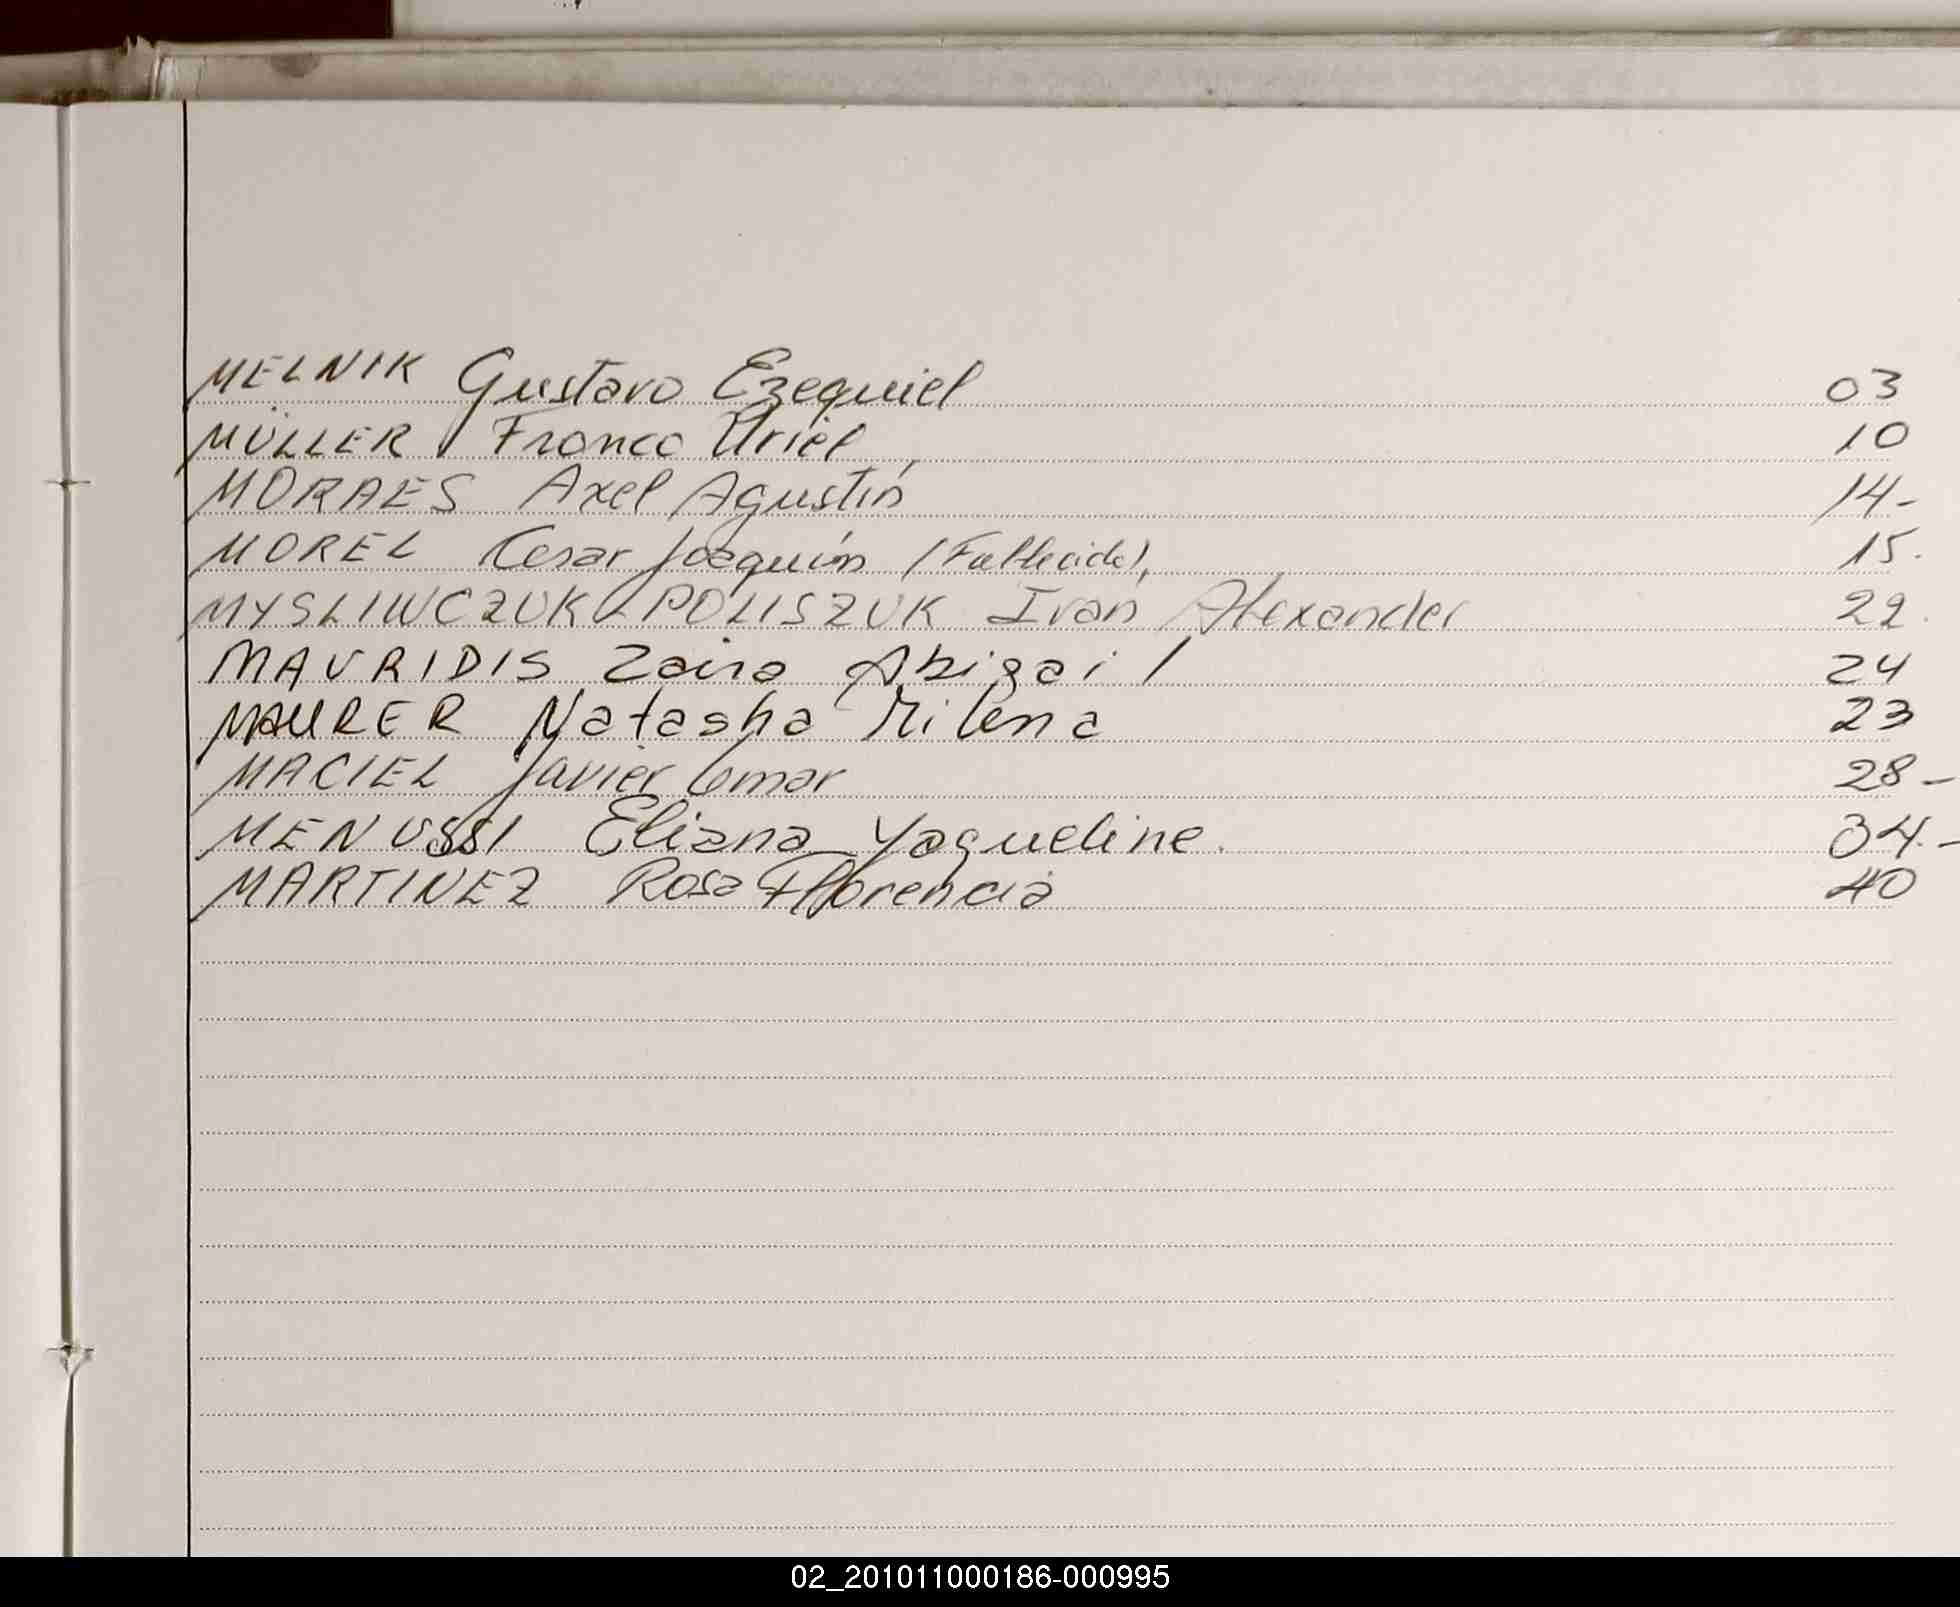 MELNIK Gustavo Ezequiel 03
MÜLLER Franco Uriel 10
MORAES Axel Agustín 14-
MOREL Cesar Joaquín (Fallecido), 15.
MYSLIWCZUK POLISZUK Ivan Alexander 22.
MAVRIDIS Zaira Abigail 24
MAURER Natasha Milena 23
MACIEL Javier Omar 28-
MENUSSI Eliana Yaqueline. 34.-
MARTINEZ Rosa Florencia 40
02_201011000186-000995